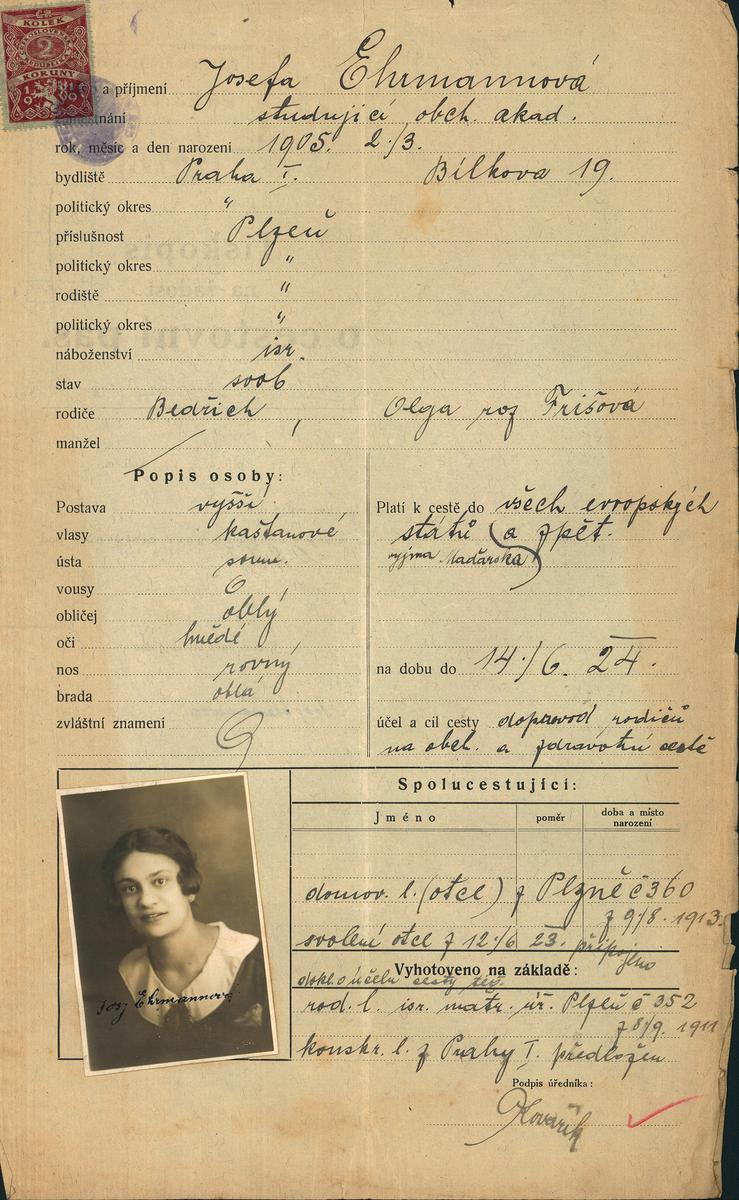 KOLEK
2
KORUNY
a příjmení Josefa Ehrmannová
studující obch. akad.
rok, měsíc a den narození 1905. 2./3.
bydliště Praha I. Bílkova 19.
politický okres "
příslušnost Plzeň
politický okres "
rodiště "
politický okres "
náboženství isr.
stav svob
rodiče Bedřich , Olga roz Frišová
manžel
Popis osoby:
Postava vyšší
vlasy kaštanové
ústa soum.
vousy 0
obličej oblý
oči hnědé
nos rovný
brada oblá
zvláštní znamení
Platí k cestě do všech evropských
států (a zpět.
vyjma Maďarska)
na dobu do 14./6. 24.
účel a cíl cesty doprovod rodičů
na obch. a zdravotní cestě
Josz Ehrmannová
Spolucestující:
Jméno poměr doba a místo narození
domov. l. (otce) z Plzně č 360
z 9/8. 1913.
svolení otce z 12./6 23. připojeno
Vyhotoveno na základě:
dokl. o účelu cesty
rod. l. isr. matr. úř. Plzeň č 352
z 8/9. 1911
konskr. l. z Prahy I. předložen
Podpis úředníka:
Kovařík